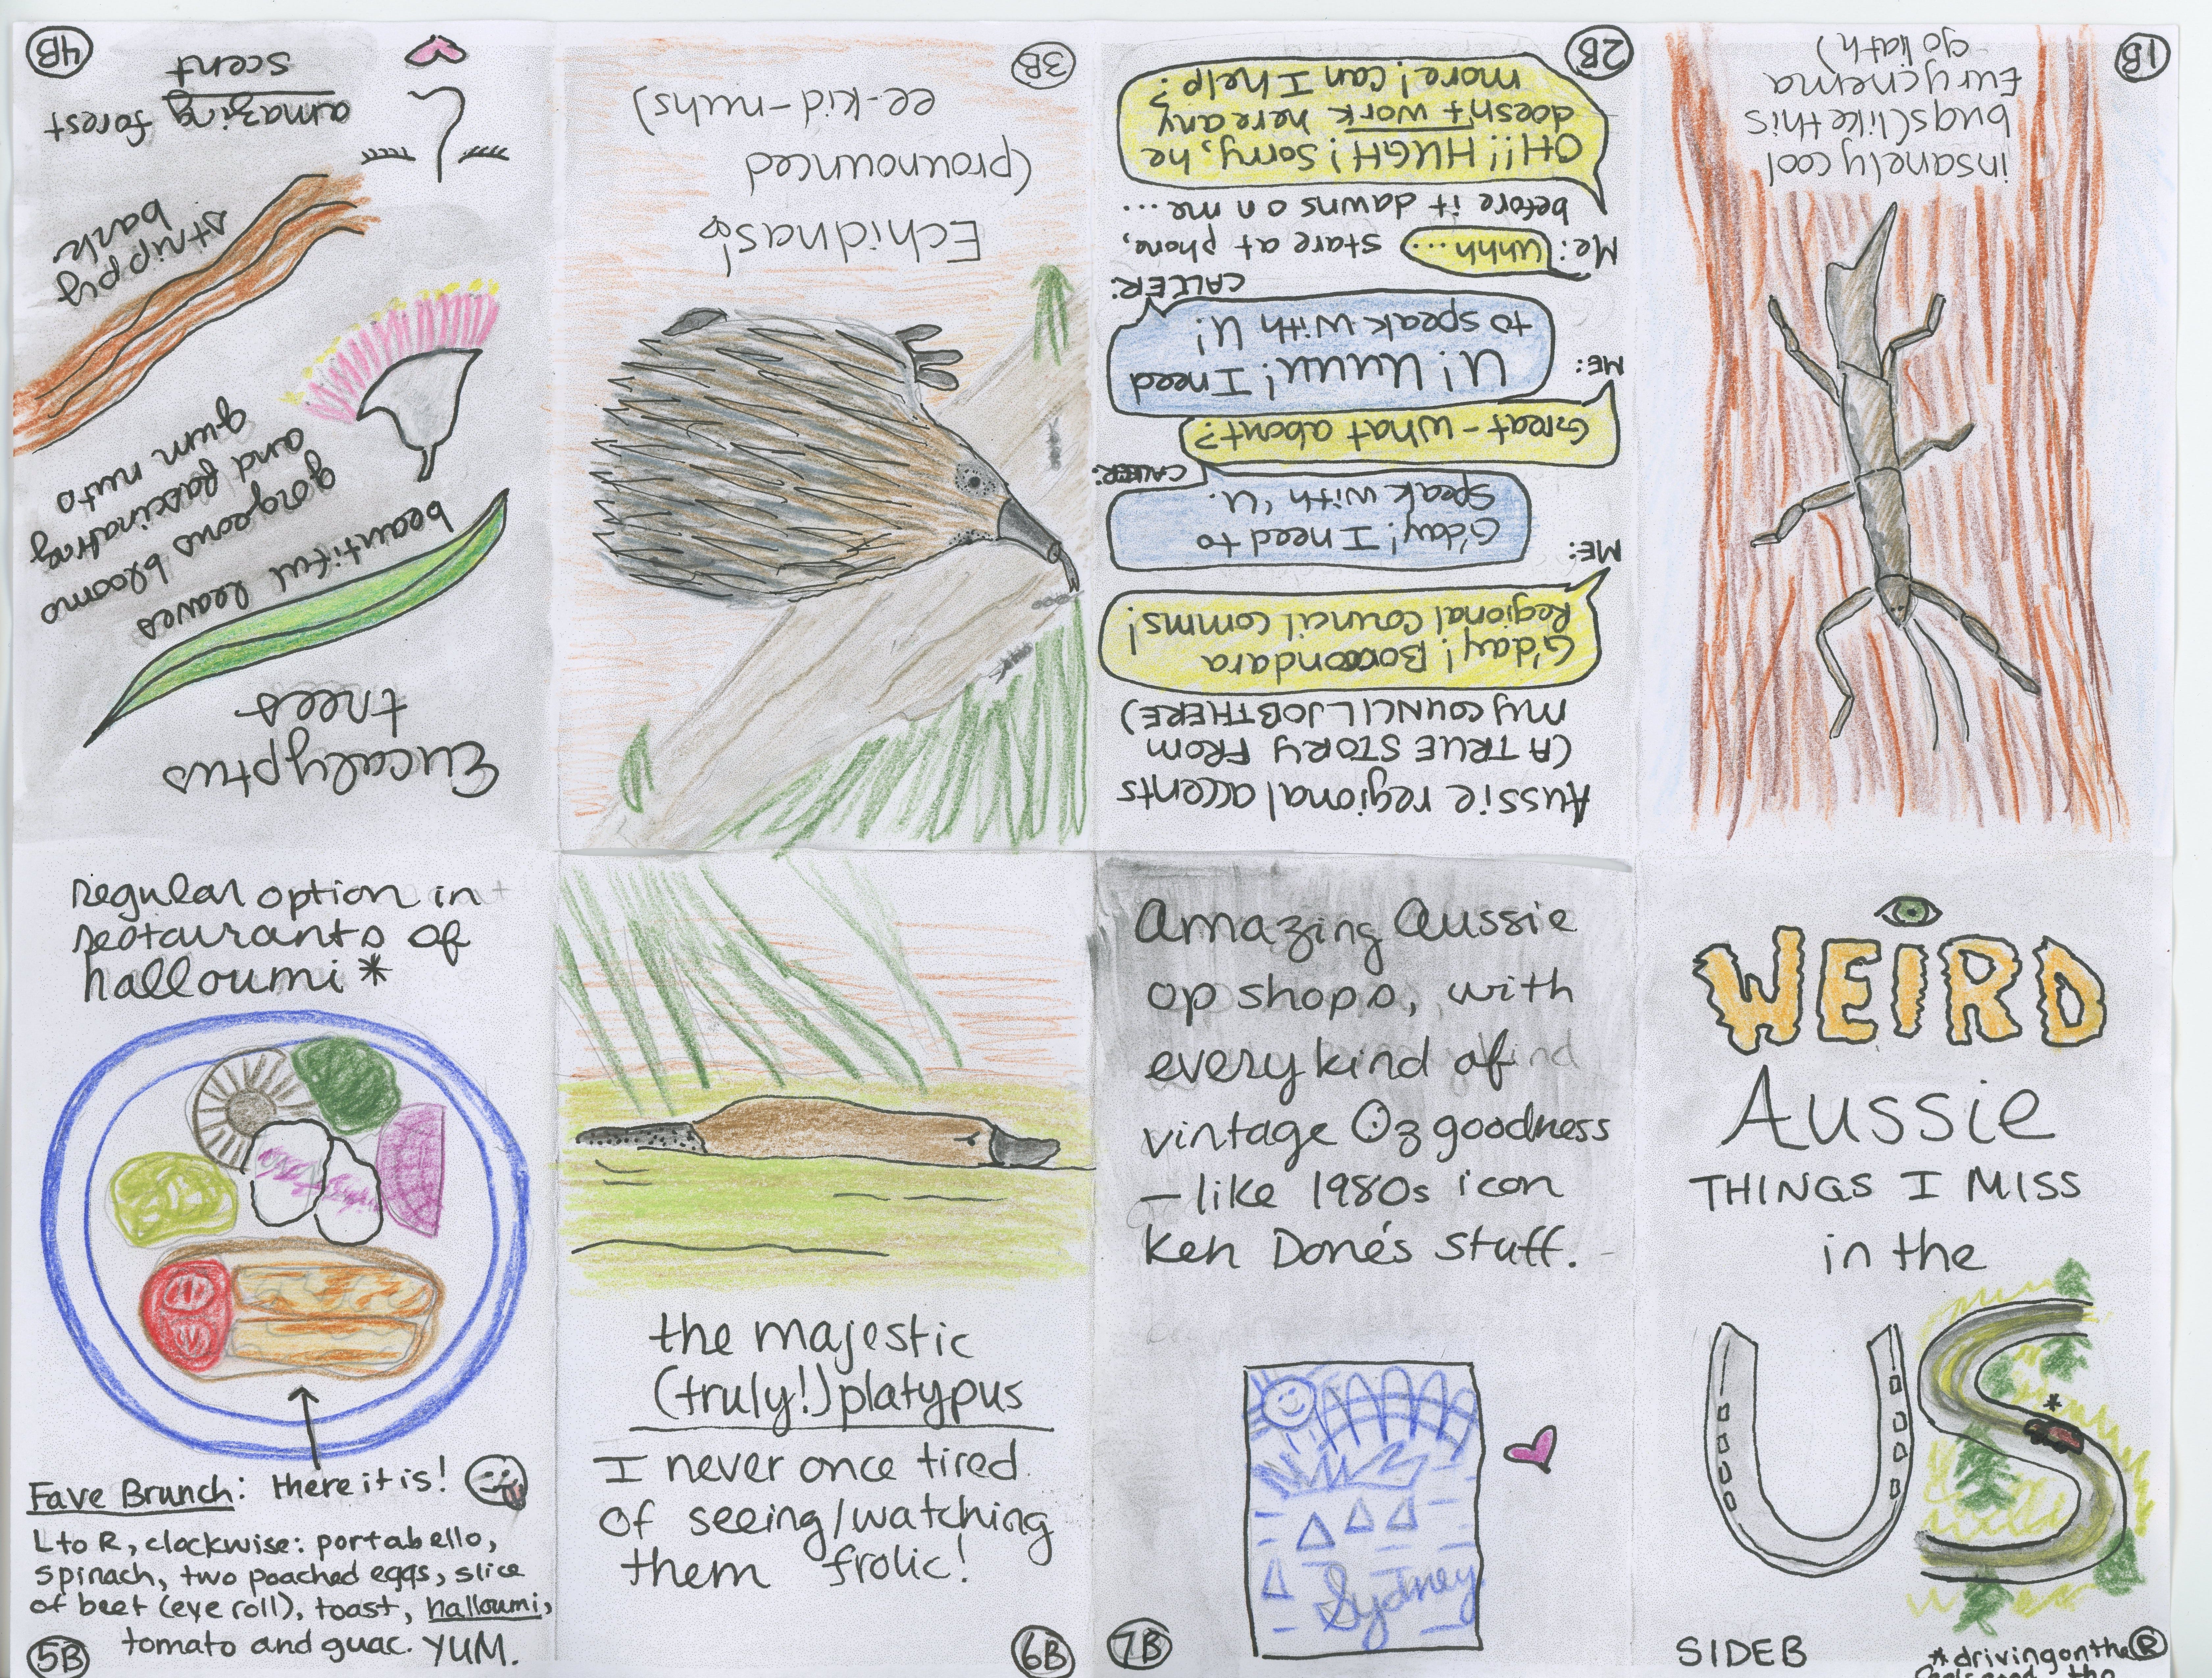 WEIRD
Aussie
THINGS I MISS
in the
US
*
SIDE B
*driving on the R
insanely cool
bugs (like this
Eurycnema
goliath)
1B
Aussie regional accents
(A TRUE STORY FROM
MY COUNCIL JOB THERE)
G'day! Boroondara
Regional Council comms!
ME:
G'day! I need to
speak with 'U.
CALLER:
Great - what about?
ME:
U! Uuuu! I need
to speak with U!
CALLER:
Me: Uhhh... stare at phone,
before it dawns on me...
OH!! HUGH! Sorry, he
doesn't work here any
more! Can I help?
2B
Echidnas!
(prounounced
ee-kid-nuhs)
3B
Eucalyptus
trees
beautiful leaves
gorgeous blooms
and fascinating
gum nuts
strippy
bark
amazing forest
scent
4B
regular option in
restaurants of
halloumi *
Fave Brunch: there it is!
L to R, clockwise: portabello,
spinach, two poached eggs, slice
of beet (eye roll), toast, halloumi,
tomato and guac. YUM.
5B
the majestic
(truly!) platypus
I never once tired
of seeing/watching
them frolic!
6B
Amazing Aussie
op shops, with
every kind of
vintage Oz goodness
- like 1980s icon
Ken Done's stuff.
Sydney
7B